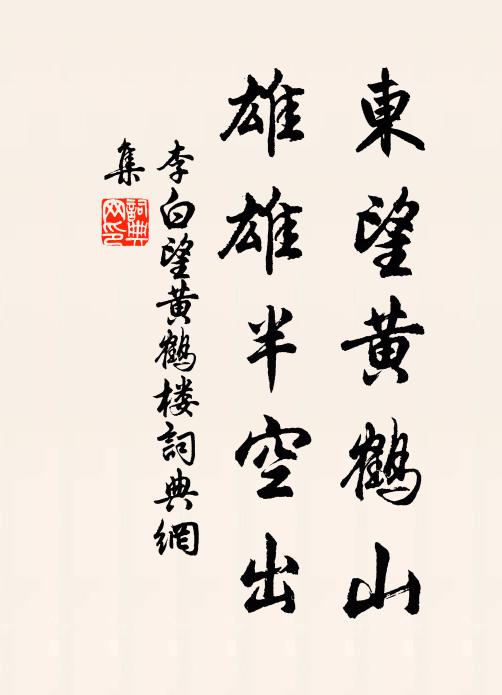 東望黄鶴山
雄雄半空出
李白望黄鶴楼詞典網
集
詞典
网印